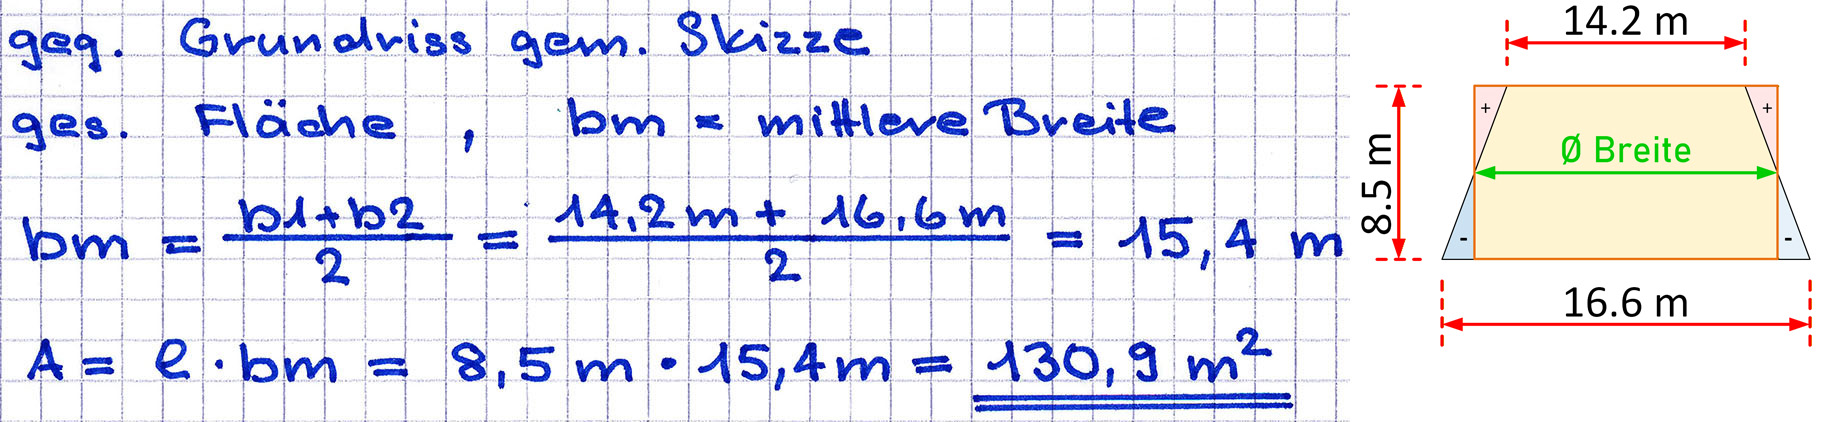 geg. Grundriss gem. Skizze
ges. Fläche , bm = mittlere Breite
bm = b1+b2 / 2 = 14,2 m + 16,6 m / 2 = 15,4 m
A = l · bm = 8,5 m · 15,4 m = 130,9 m²
14.2 m
+ +
Ø Breite
8.5 m
- -
16.6 m